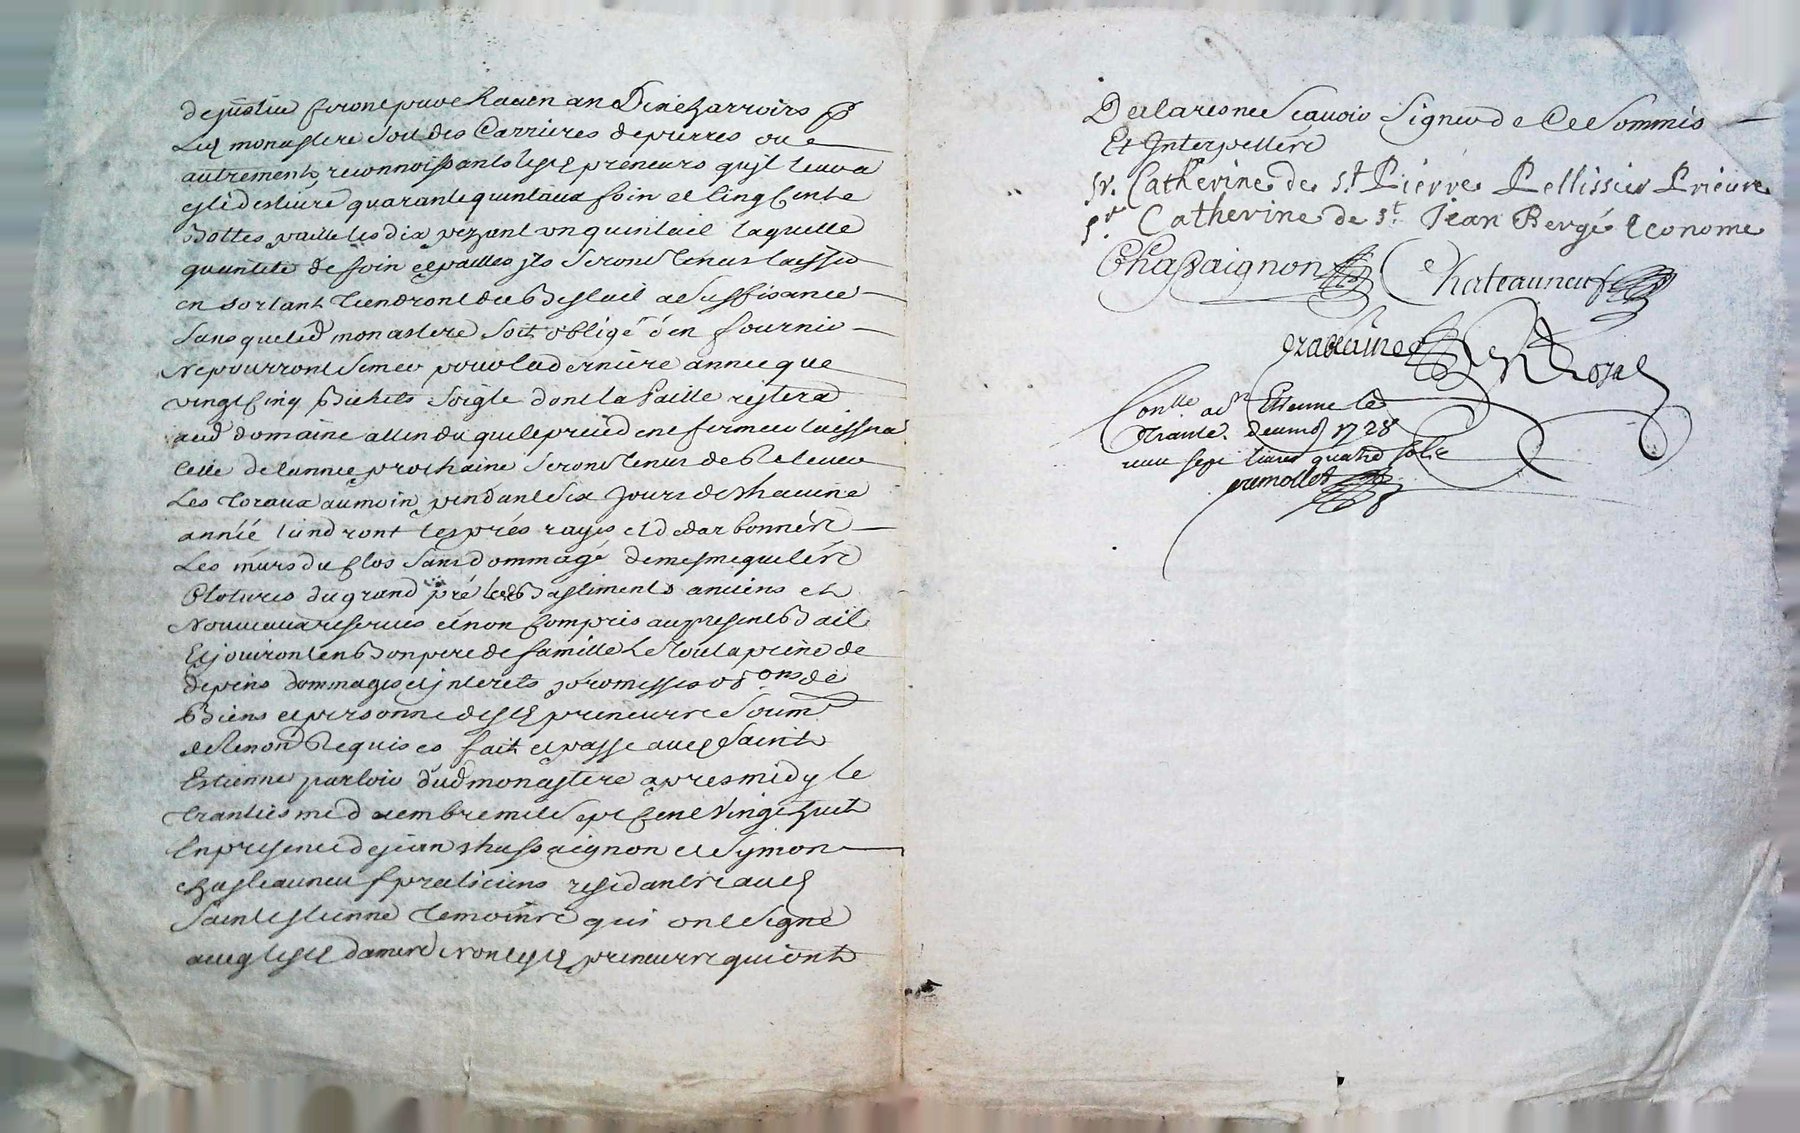 de justice feront pour chacun an Dix charroirs p
Led monastere soit des Carrieres de pierres ou
autrement, reconnoissants lesd preneurs qu'il leur a
esté deslivré quarante quintaux foin et Cinq Cents
Bottes paille les dix pezant un quintail laquelle
quantité de foin et pailles ils seront tenus laisser
en sortant tiendront du Bestail a suffisance
sans que led monastere soit obligé d'en fournir
Ne pourront semer pour la derniere année que
vingt Cinq Bichets soigle dont la Paille restera
aud domaine attendu que le preced ene fermier laissera
Celle de l'année prochaine seront tenus de Relever
Les Toraux au moin pendant six jours de chacune
année tiendront les prés rayés et
Les murs du Clos sans dommage de mesme que les
Clotures du grand pré les Bastiments anciens et
Nouveaux reservés et non Compris au present Bail
Et jouiront en Bon pere de famille Le tout a peine de
depens dommages et interets promesses obons de
Biens et personne desd preneurs soumons
et Renons Requises fait et passé aud Saint
Estienne parloir dud monastere apres midy le
trantiesme decembre mil sept Cent Vingt huit
En presence de jean Chassaignon et Symon
Chasteauneuf praticiens residants aud
Saint Estienne temoins qui ont signé
avec lesd dames et non lesd preneurs qui ont
Declarés ne sçavoir signer de Ce sommés
Et Interpellés
Sr. Catherine de St. Pierre Pellissier Prieure
Sr. Catherine de St. Jean Bergé Econome
Chassaignon Chateauneuf
Conlle a St Etienne le
trante decemb 1728
reçu sept livres quatre sols